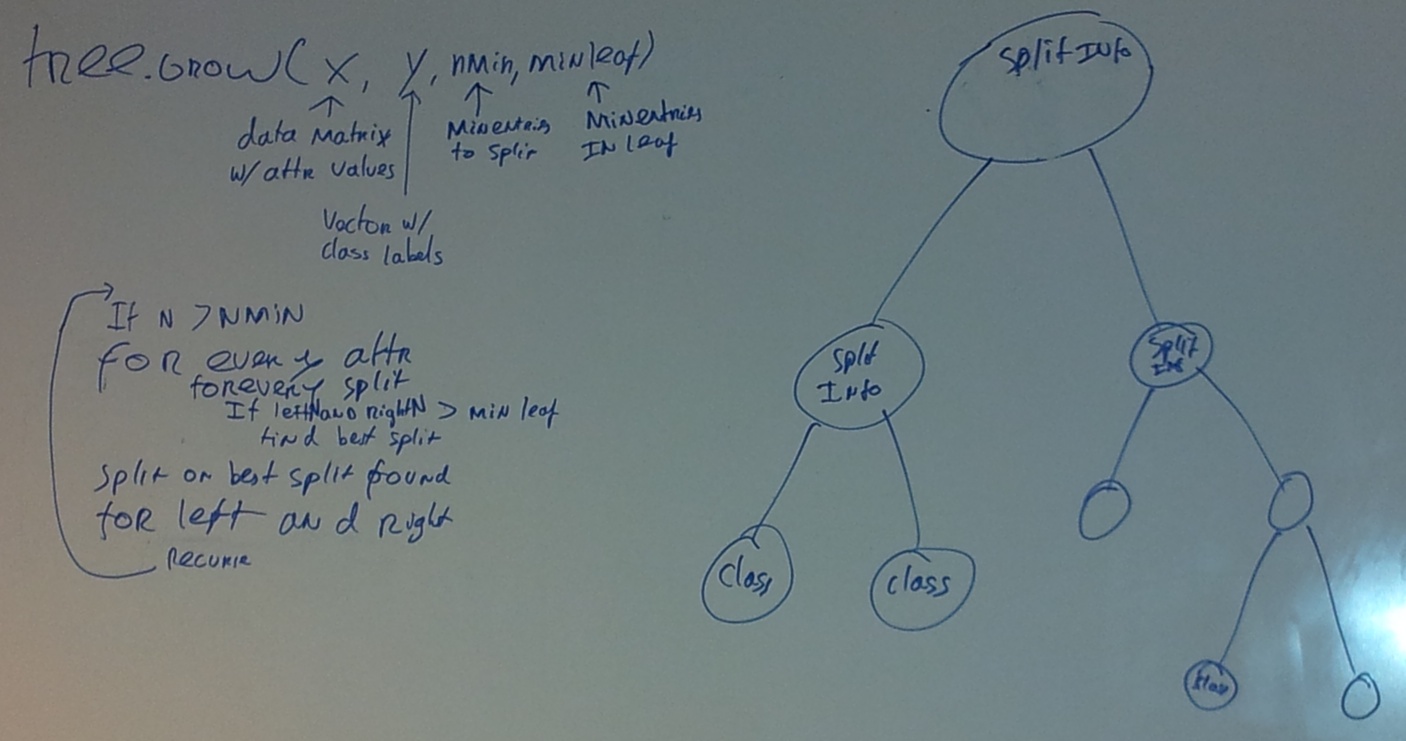 tree.grow(x, y, nmin, minleaf)
data matrix
w/ attr values
Min entries
to split
Min entries
IN leaf
Vector w/
class labels
If N > NMIN
FOR every attr
for every split
If leftN and rightN > min leaf
find best split
split on best split found
for left and right
recurse
split INfo
split
INfo
split
Class
class